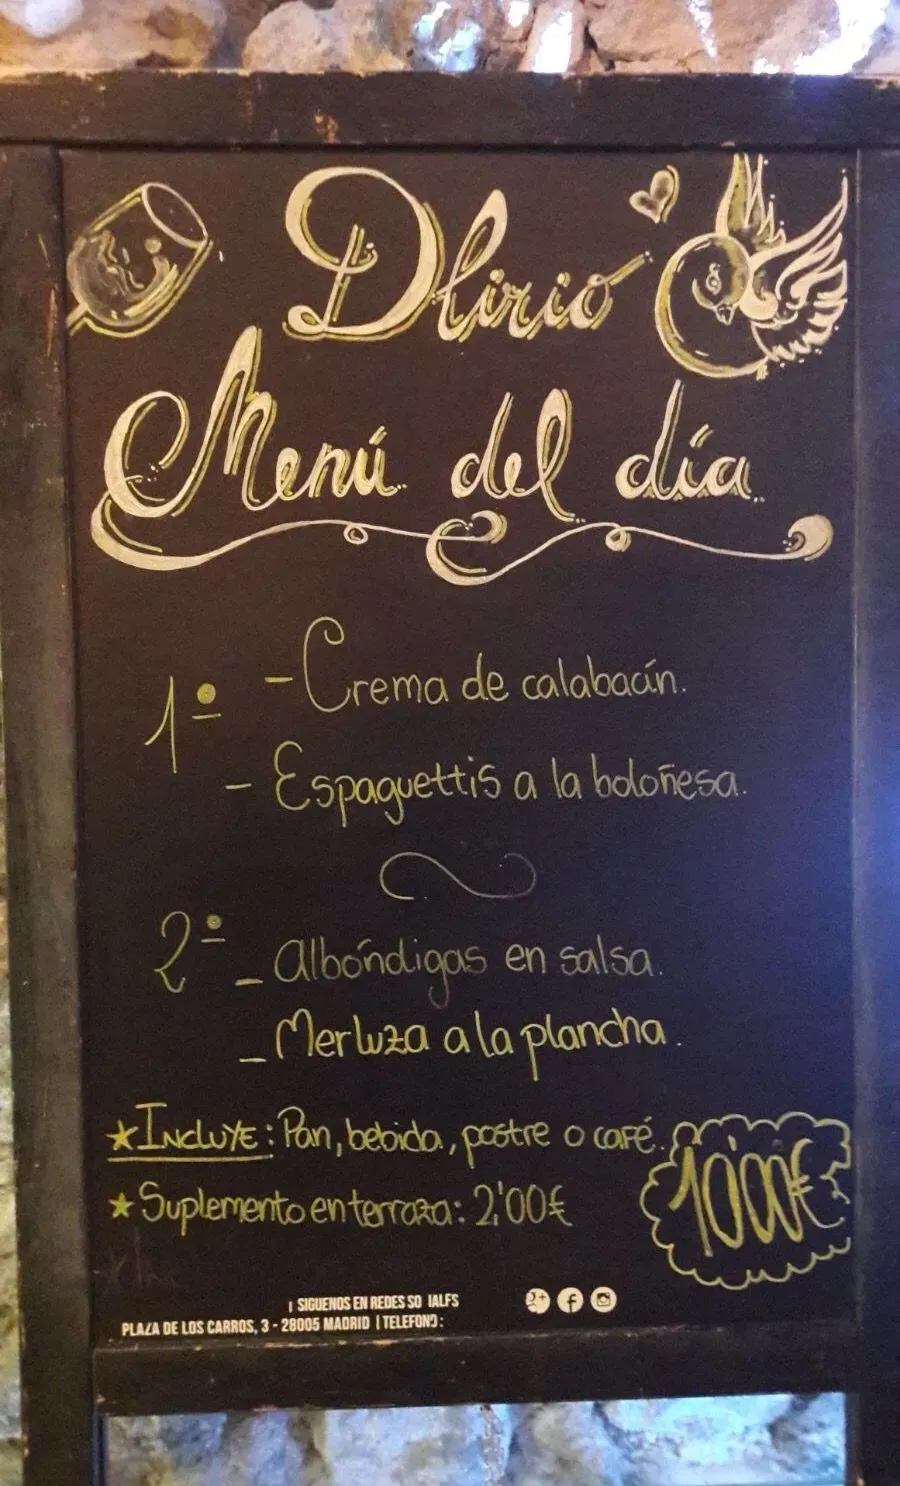 Dlirio
Menú del día
1º - Crema de calabacín.
- Espaguettis a la boloñesa.
2º - Albóndigas en salsa.
- Merluza a la plancha.
★ INCLUYE: Pan, bebida, postre o café.
★ Suplemento en terraza: 2'00€
10'00€
| SIGUENOS EN REDES SO IALES
PLAZA DE LOS CARROS, 3 - 28005 MADRID | TELEFONO: